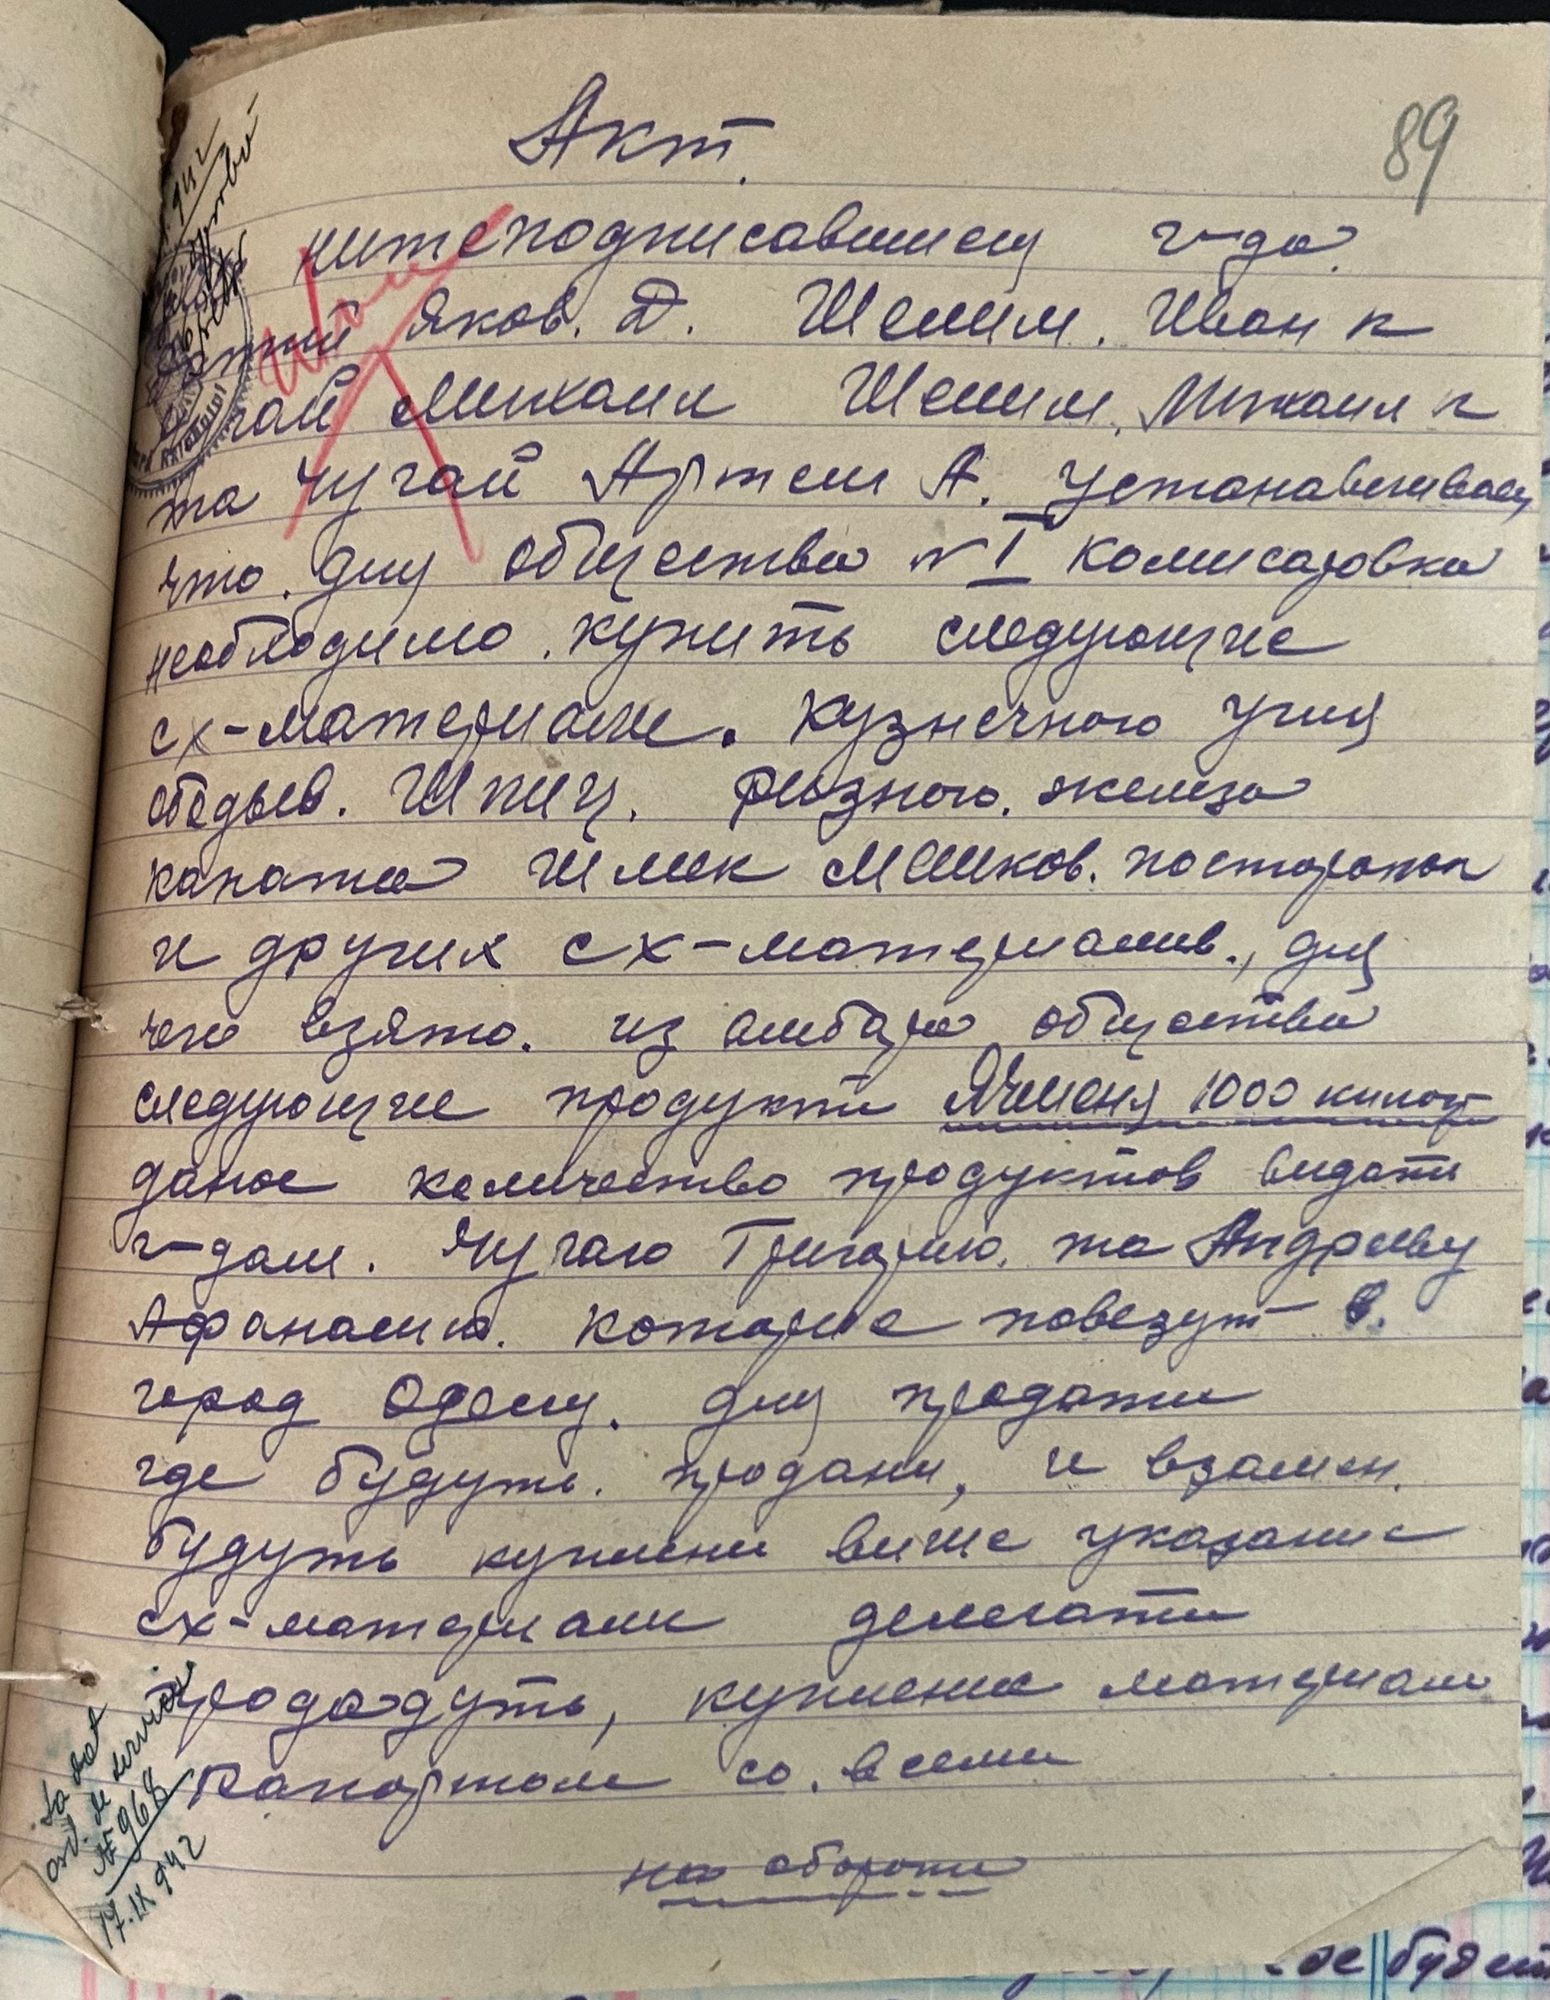 89
Акт.
нижеподписавшиеся г-да
Яков. Д. Шелим. Иван к
Михаил Шелим. Михаил к
та Чугай Артем А. устанавливаем
что. для общества №I Комисаровка
необходимо. купить следующие
сх-материали. кузнечного угля
ободьев. Шпиц. разного. железа
каната шлек мешков. посторонок
и других сх-материалив., для
чего взято. из амбара общества
следующие продукти Ячменя 1000 килог
даное количество продуктов видати
г-дам. Чугаю Григорию. та Андрееву
Афанасию. которие повезут в.
город Одесу. для продажи
где будуть. продани, и взамен.
будуть куплени више указание
сх-материали делегати
продадуть, купление материали
Рапортом со. всеми
на обороти
S-a dat
ord. de serviciu
№ 968
17.IX 942